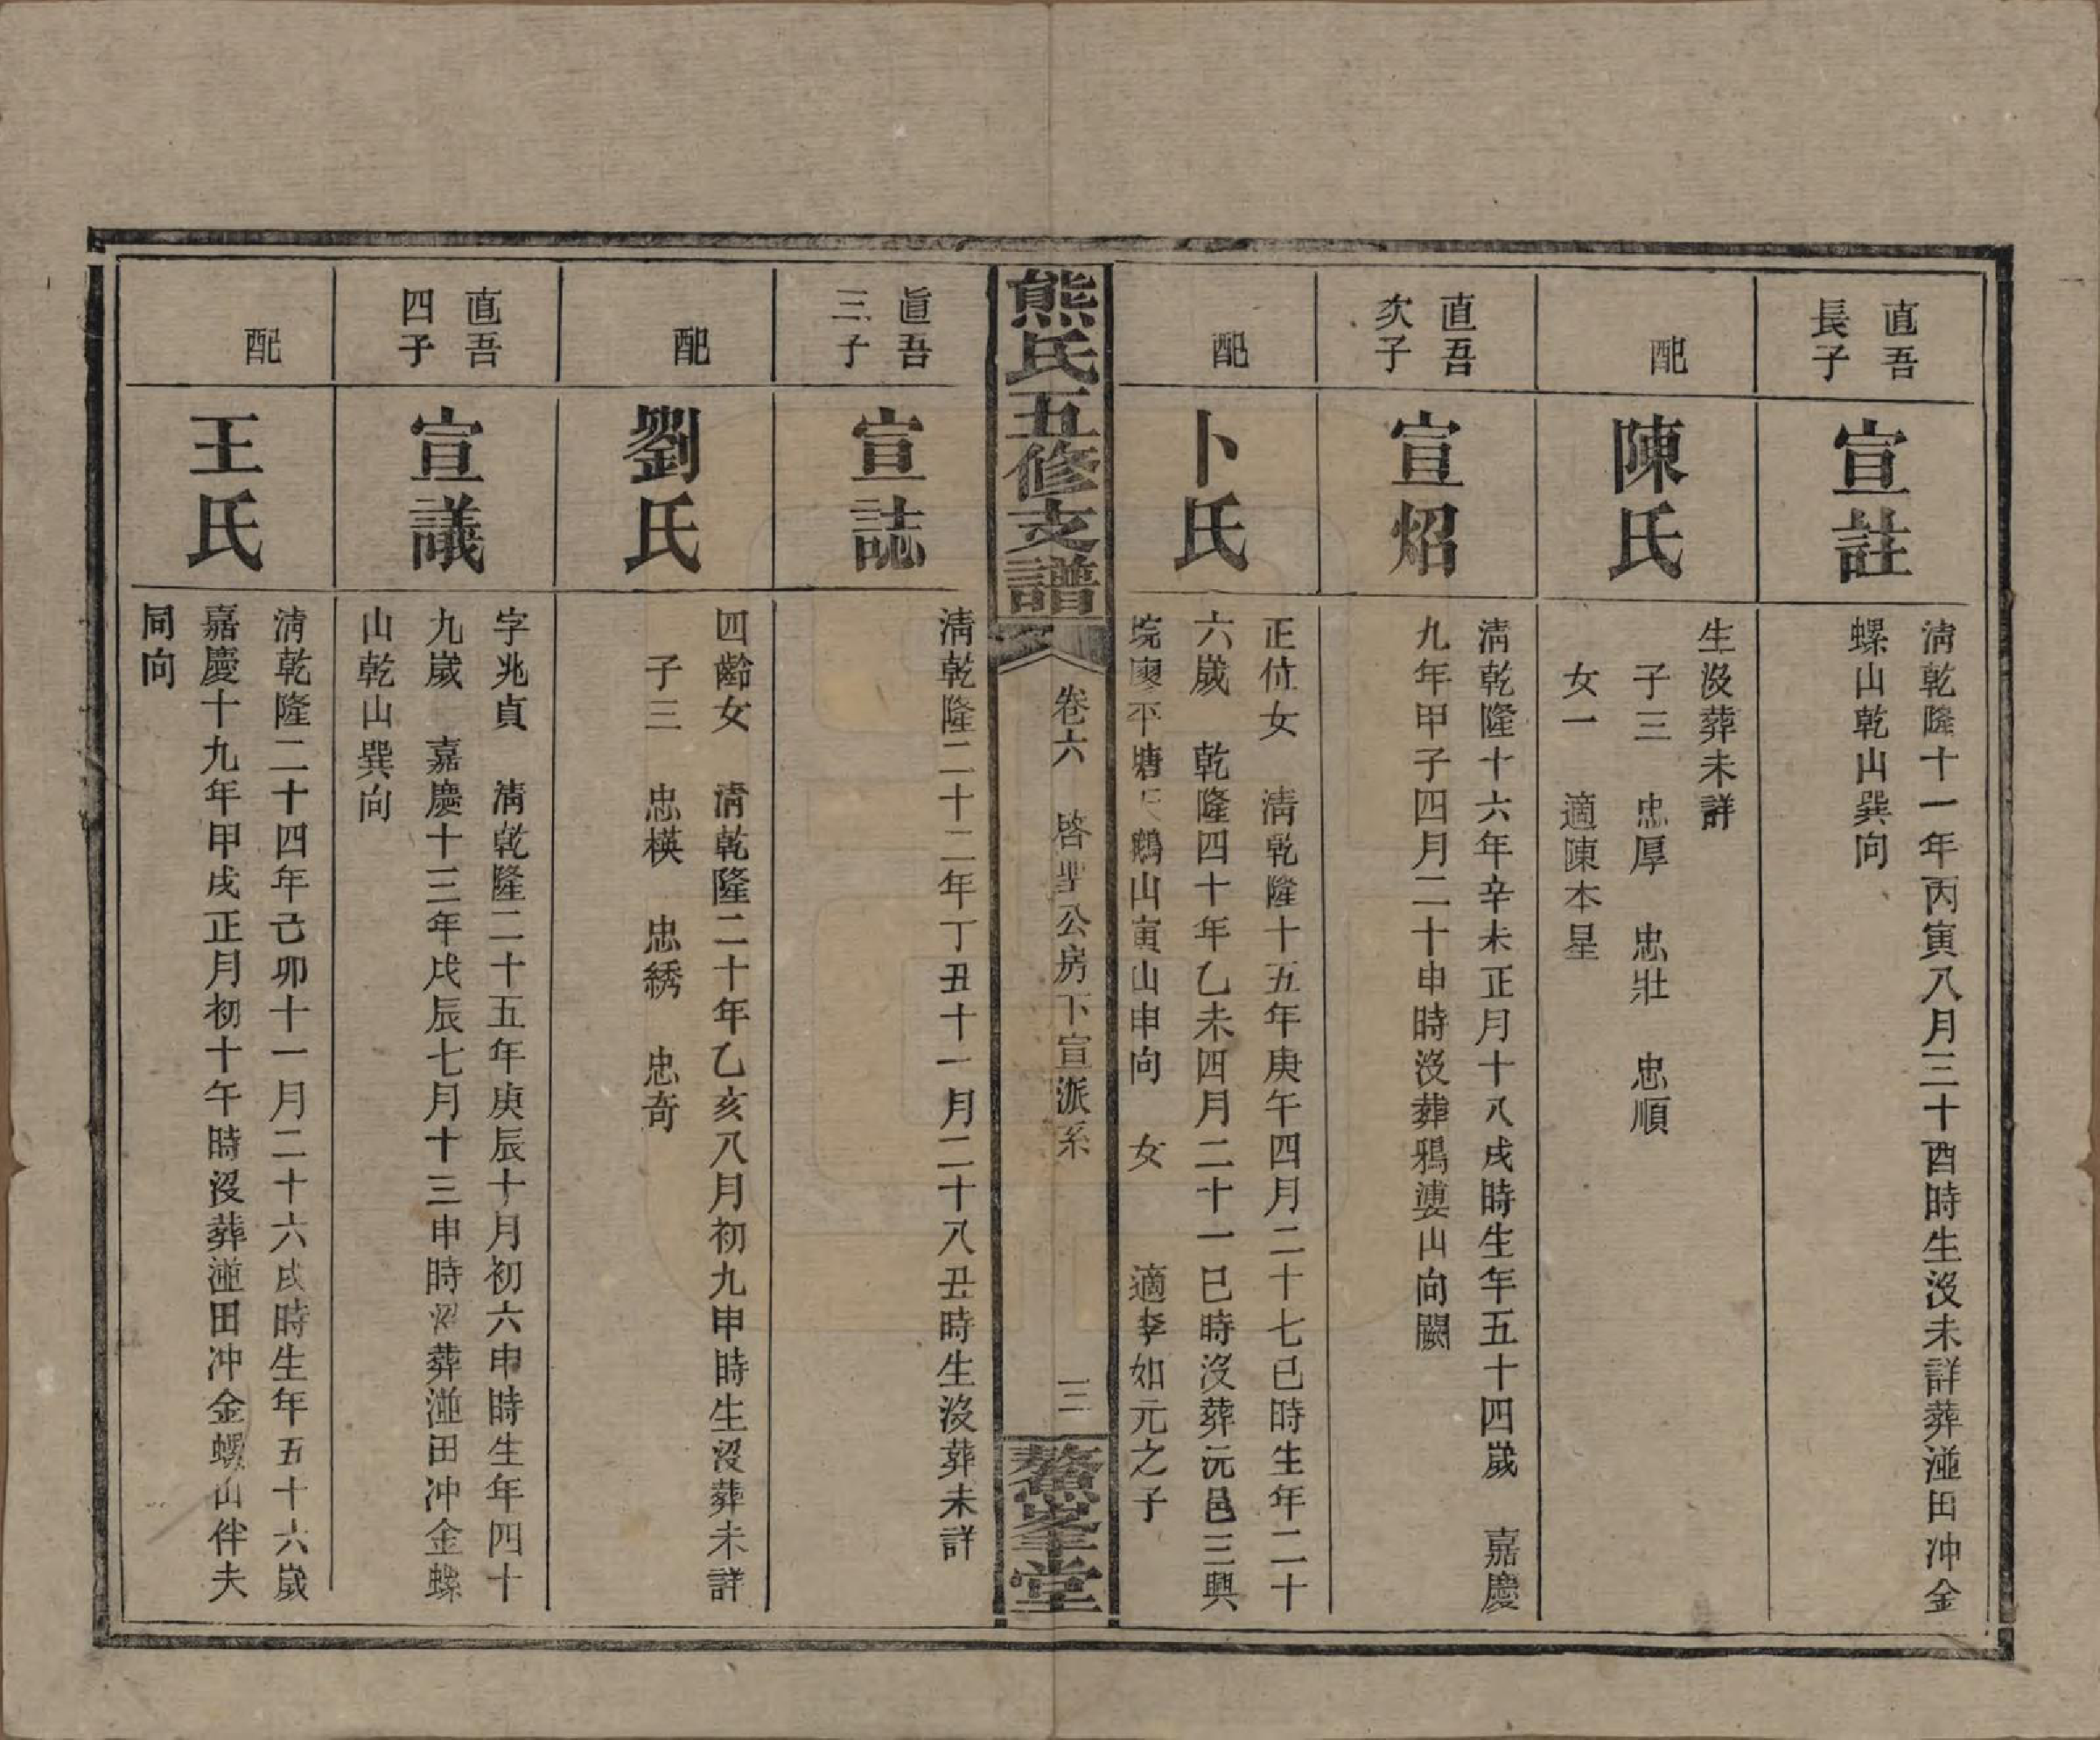 直吾
長子
宣註
清乾隆十一年丙寅八月三十酉時生没未詳葬湴田冲金
螺山乾山巽向
配
陳氏
生没葬未詳
子三　忠厚　忠壯　忠順
女一　適陳本星
直吾
次子
宣炤
清乾隆十六年辛未正月十八戌時生年五十四歲　嘉慶
九年甲子四月二十申時没葬鴉婁山向闕
配
卜氏
正位女　清乾隆十五年庚午四月二十七巳時生年二十
六歲　乾隆四十年乙未四月二十一巳時没葬沅邑三興
垸廖平塘天鵝山寅山申向　女　適李如元之子
熊氏五修支譜
卷六　啓聖公房下宣派系
三
鰲峯堂
直吾
三子
宣誌
清乾隆二十二年丁丑十一月二十八丑時生没葬未詳
配
劉氏
四齡女　清乾隆二十年乙亥八月初九申時生没葬未詳
子三　忠模　忠綉　忠奇
直吾
四子
宣議
字兆貞　清乾隆二十五年庚辰十月初六申時生年四十
九歲　嘉慶十三年戊辰七月十三申時没葬湴田冲金螺
山乾山巽向
配
王氏
清乾隆二十四年己卯十一月二十六戌時生年五十六歲
嘉慶十九年甲戌正月初十午時没葬湴田冲金螺山伴夫
同向